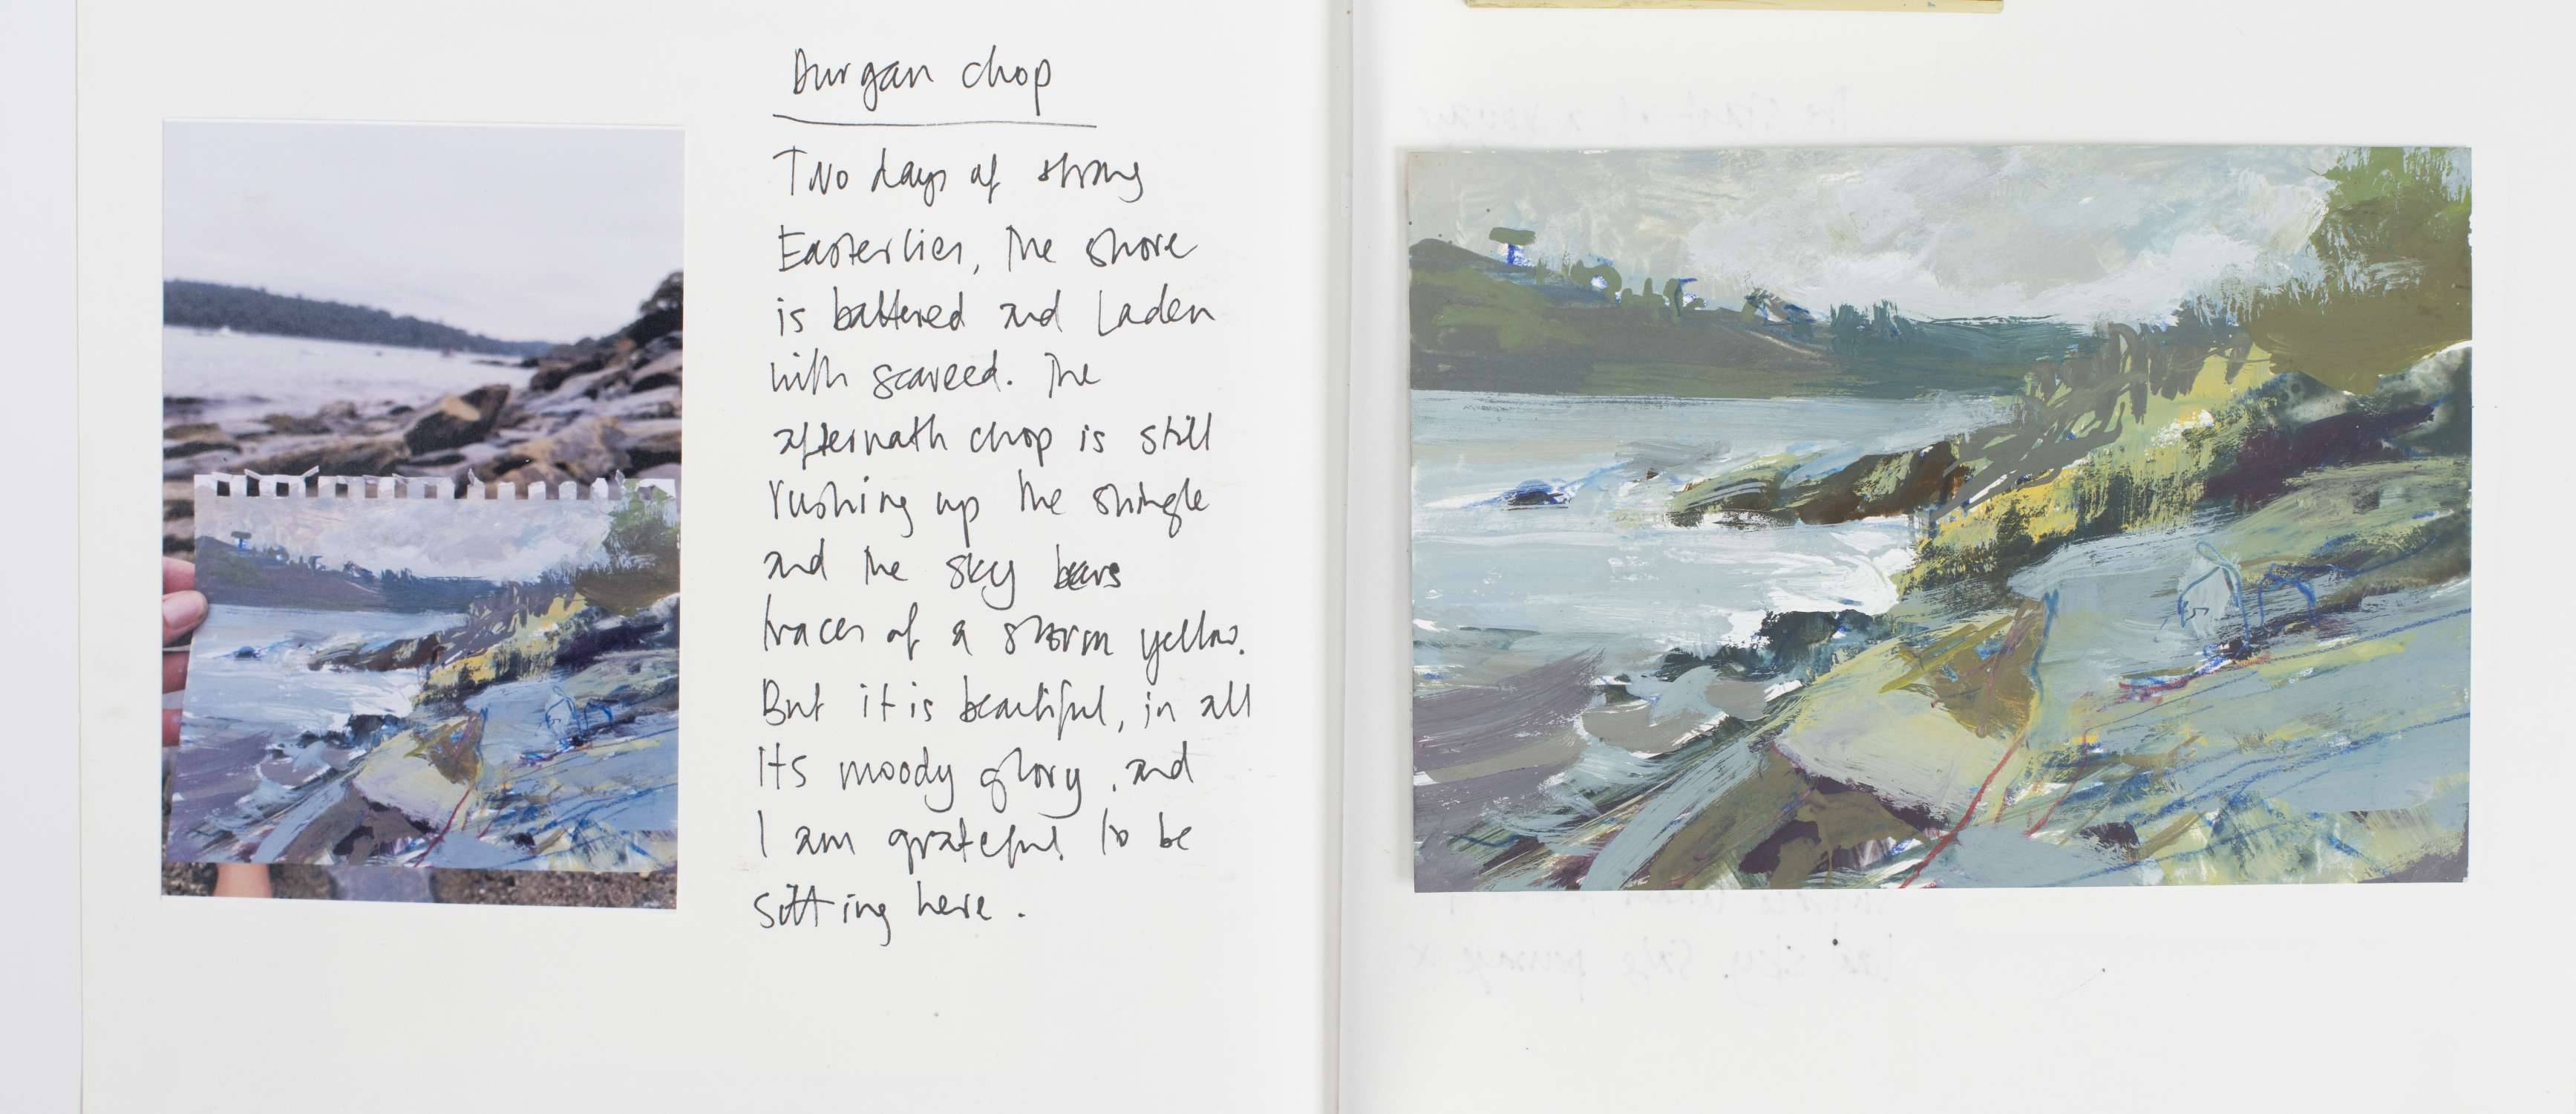 Durgan chop
Two days of strong
Easterlies, The shore
is battered and Laden
with seaweed. The
aftermath chop is still
rushing up the shingle
and the sky bears
traces of a storm yellow.
But it is beautiful, in all
its moody glory, and
I am grateful to be
sitting here.